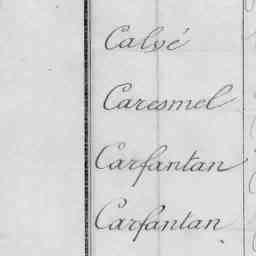 Calvé
Caresmel
Carfantan
Carfantan